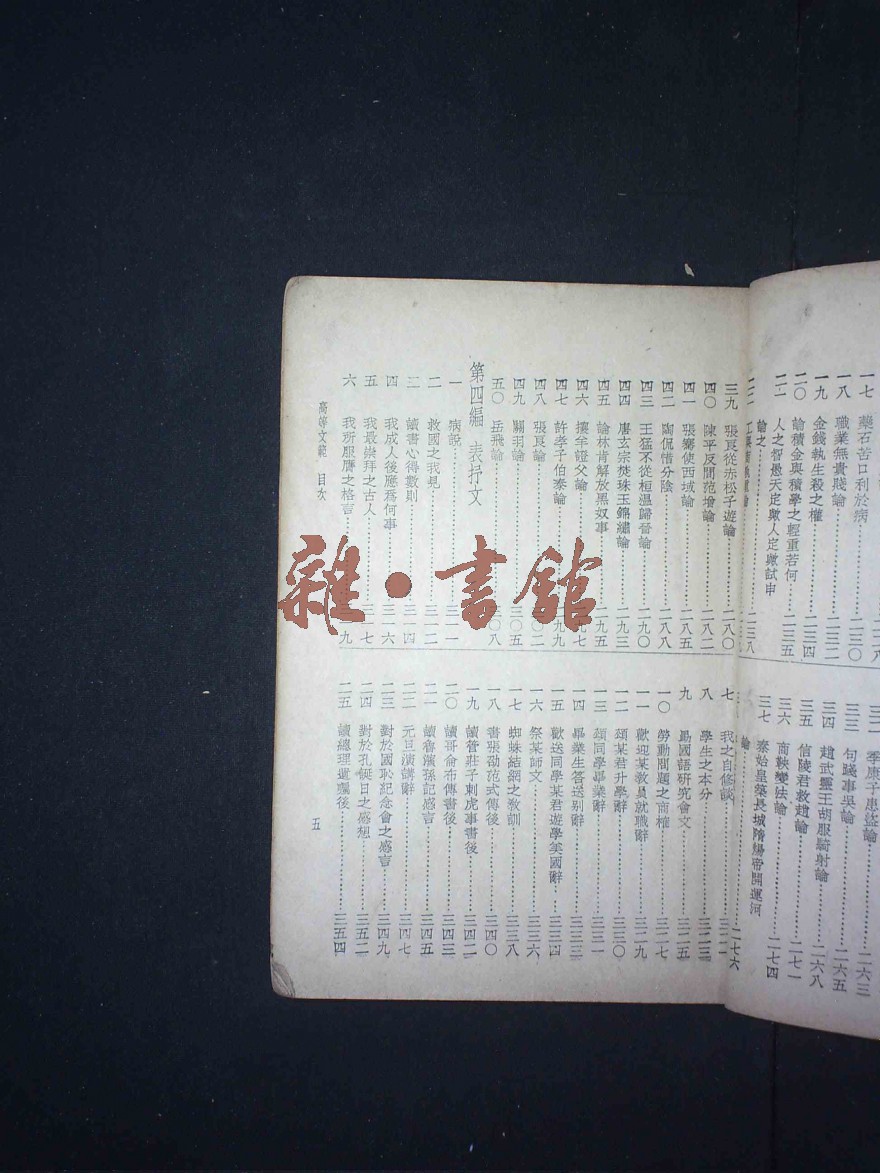 一七 藥石苦口利於病
一八 職業無貴賤論…二三〇
一九 金錢執生殺之權…二三二
二〇 論積金與積學之輕重若何…二三四
二一 人之智愚天定歟人定歟試申
論之…二三五
二三八
三二 季康子患盜論…二六三
三三 句踐事吳論…二六五
三四 趙武靈王胡服騎射論…二六八
三五 信陵君救趙論…二七一
三六 商鞅變法論…二七四
三七 秦始皇築長城隋煬帝開運河
論…二七六
三九 張良從赤松子遊論…二八〇
四〇 陳平反間范增論…二八二
四一 張騫使西域論…二八五
四二 陶侃惜分陰…二八八
四三 王猛不從桓溫歸晉論…二九〇
四四 唐玄宗焚珠玉錦繡論…二九三
四五 論林肯解放黑奴事…二九五
四六 攘羊證父論…二九七
四七 許孝子伯泰論…二九九
四八 張良論…三〇二
四九 關羽論…三〇五
五〇 岳飛論…三〇八
第四編 表抒文
一 病說…三一一
二 救國之我見…三一二
三 讀書心得數則…三一四
四 我成人後應爲何事…三一六
五 我最崇拜之古人…三一七
六 我所服膺之格言…三一九
七 我之自修談…三二一
八 學生之本分…三二三
九 勗國語研究會文…三二五
一〇 勞動問題之商榷…三二七
一一 歡迎某教員就職辭…三二九
一二 頌某君升學辭…三三〇
一三 頌同學畢業辭…三三一
一四 畢業生答送別辭…三三三
一五 歡送同學某君遊學美國辭…三三四
一六 祭某師文…三三六
一七 蜘蛛結網之教訓…三三八
一八 書張劭范式傳後…三四〇
一九 讀管莊子刺虎事書後…三四二
二〇 讀哥侖布傳書後…三四三
二一 讀魯濱孫記感言…三四五
二二 元旦演講辭…三四七
二三 對於國恥紀念會之感言…三四九
二四 對於孔誕日之感想…三五二
二五 讀總理遺囑後…三五四
高等文範 目次
五
雜·書館